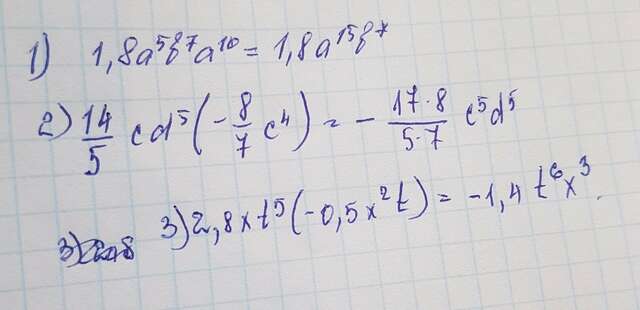 1) 1,8a⁵b⁷a¹⁰ = 1,8a¹⁵b⁷
2) 14/5 cd⁵(-8/7 c⁴) = - 17·8/5·7 c⁵d⁵
3) 2,8xt⁵(-0,5x²t) = -1,4t⁶x³.